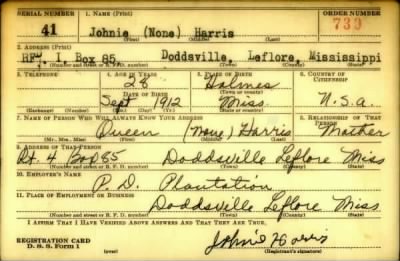 SERIAL NUMBER 1. NAME (Print) ORDER NUMBER
41 Johnie (None) Harris 739
(First) (Middle) (Last)
2. ADDRESS (Print)
RFD. 1, Box 85 Doddsville, Leflore, Mississippi
(Number and street or R. F. D. number) (Town) (County) (State)
3. TELEPHONE 4. AGE IN YEARS 5. PLACE OF BIRTH 6. COUNTRY OF CITIZENSHIP
28 Holmes
DATE OF BIRTH (Town or county)
Sept 1912 Miss. U.S.a.
(Exchange) (Number) (Mo.) (Day) (Yr.) (State or country)
7. NAME OF PERSON WHO WILL ALWAYS KNOW YOUR ADDRESS 8. RELATIONSHIP OF THAT PERSON
Queen (None) Harris Mother
(Mr., Mrs., Miss) (First) (Middle) (Last)
9. ADDRESS OF THAT PERSON
Rt. 4 Box 85 Doddsville Leflore Miss
(Number and street or R. F. D. number) (Town) (County) (State)
10. EMPLOYER'S NAME
P. D. Plantation
11. PLACE OF EMPLOYMENT OR BUSINESS
Doddsville Leflore Miss
(Number and street or R. F. D. number) (Town) (County) (State)
I AFFIRM THAT I HAVE VERIFIED ABOVE ANSWERS AND THAT THEY ARE TRUE.
REGISTRATION CARD
D. S. S. Form 1
Johnie Harris